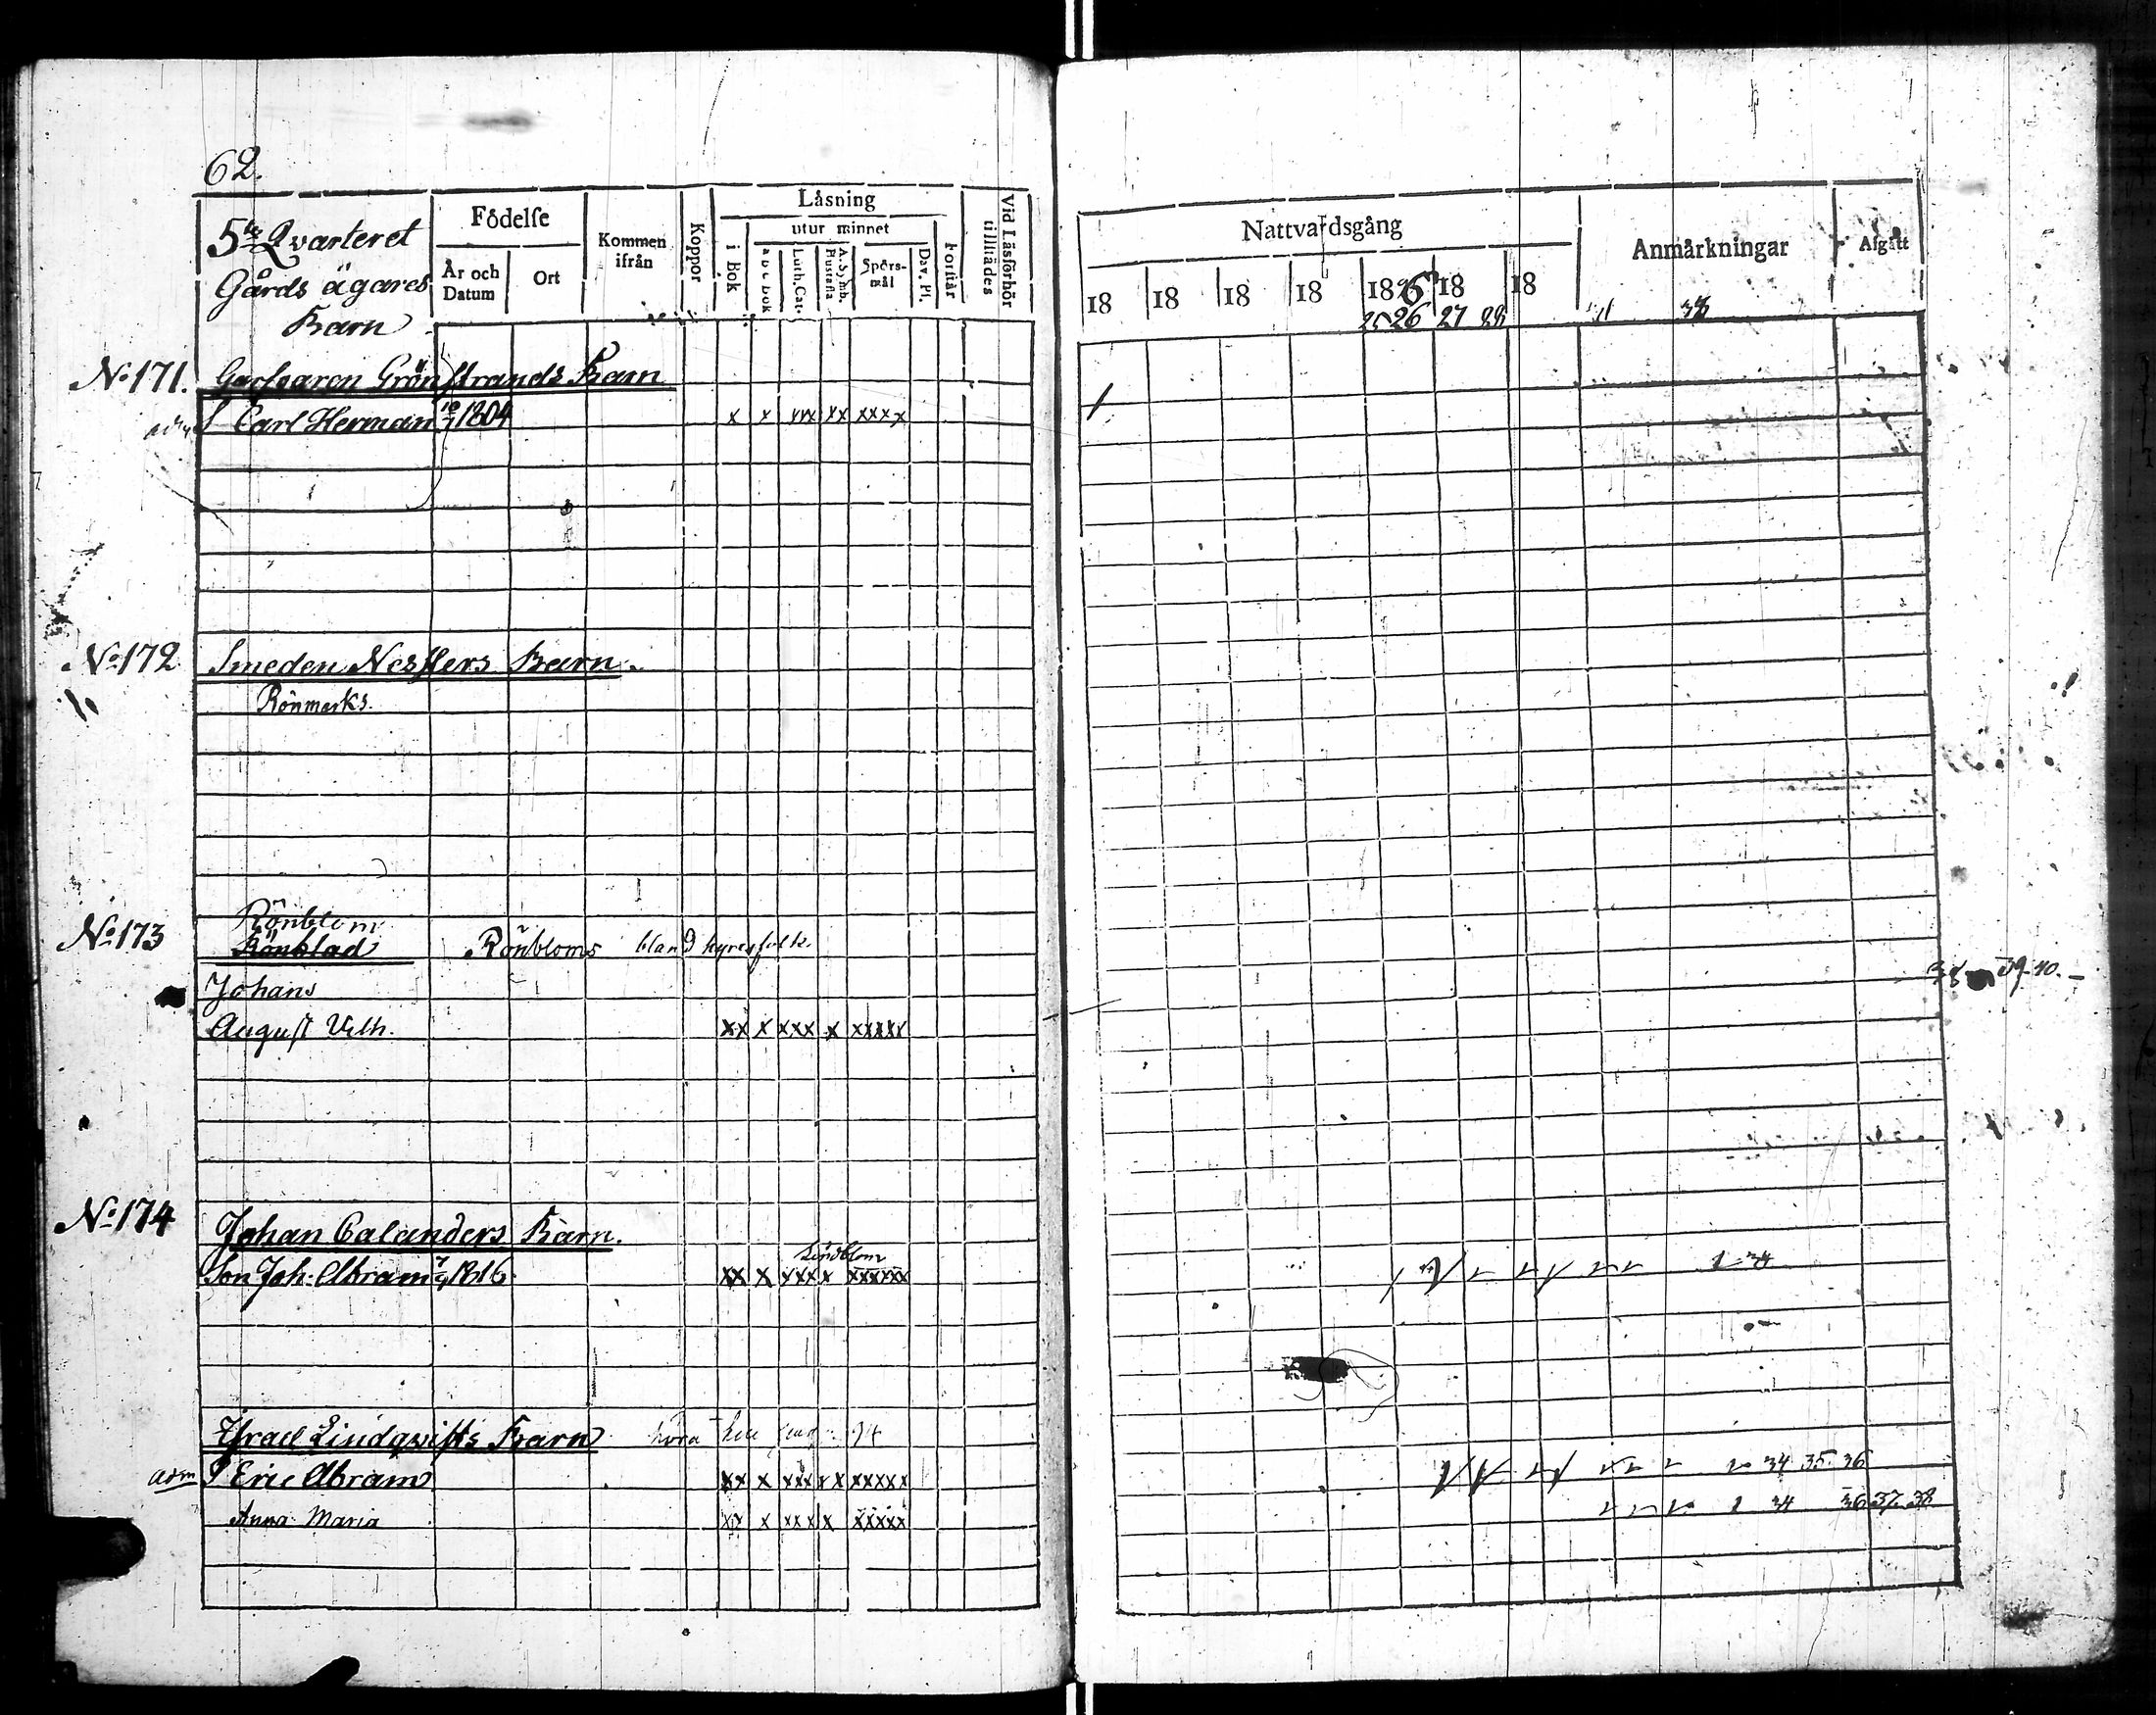 62.
5te Qvarteret
Gårds ägares
Barn
Födelse
År och Datum
Ort
Kommen ifrån
Koppor
Läsning
i Bok
utur minnet
a b c bok
Luth. Cat.
A. Symb. Hustafla
Spörsmål
Dav. Ps.
Förstår
Vid Läsförhör tillstädes
Nattvardsgång
18 18 18 18 1826 18 18
25 26 27 28
Anmärkningar
38
Afgått
No 171. Garfvaren Grönstrands Barn
S Carl Herman 10/7 1804 x x xxx xx xxxx
No 172 Smeden Nesslers Barn.
Rönmarks.
Rönblom
No 173 Rönblad Rönbloms bland hyresfolk
38 39-40.
Johans
August Vilh. xx x xxx x xxxxx
No 174
Johan Calanders Barn.
Lindblom
Son Joh: Abram 7/9 1816 xx x xxx x xxxxxx 34
Israel Lindqvists Barn
adm S Eric Abram xx x xxx xx xxxxx 34 35. 36
Anna Maria xx x xxx x xxxxx 34 36 37. 38